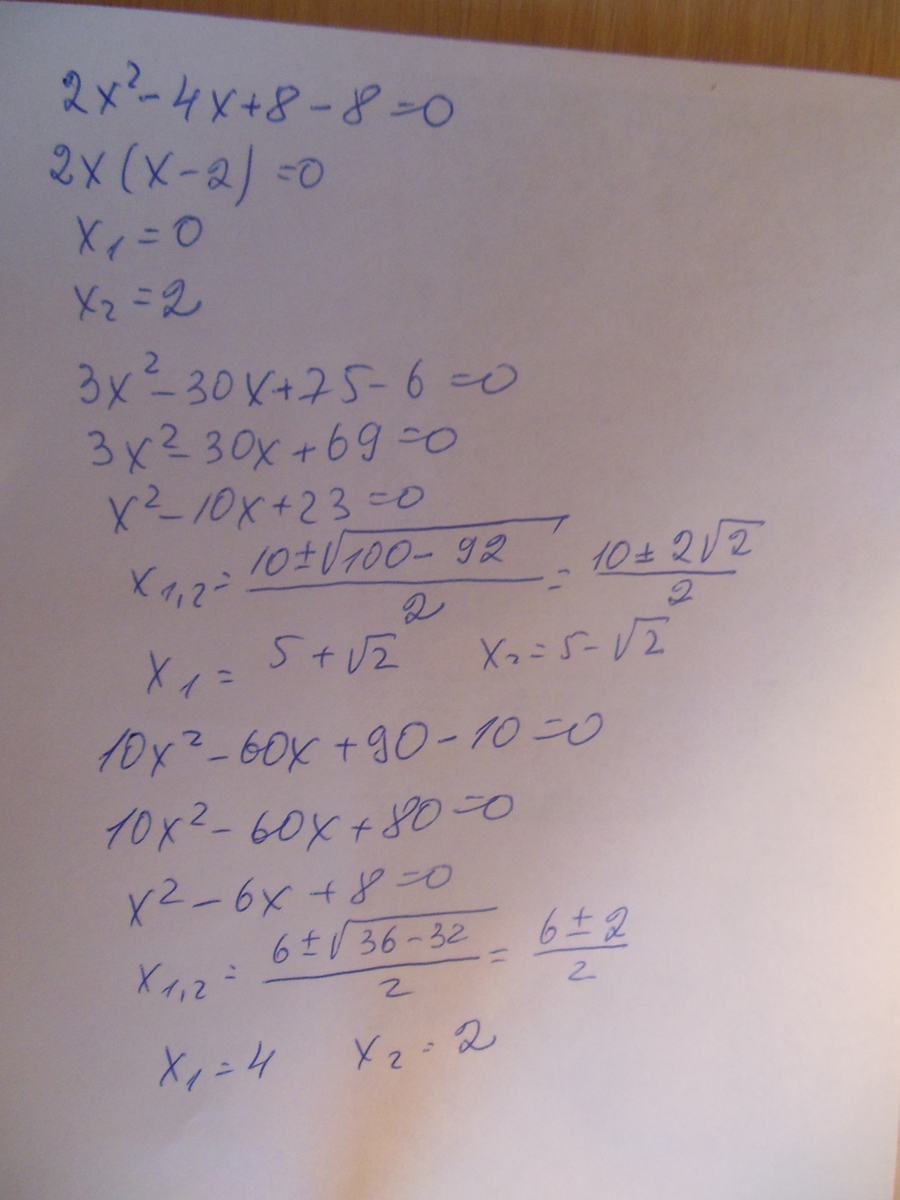 2x² - 4x + 8 - 8 = 0
2x(x - 2) = 0
x₁ = 0
x₂ = 2
3x² - 30x + 75 - 6 = 0
3x² - 30x + 69 = 0
x² - 10x + 23 = 0
x₁,₂ = (10 ± √(100 - 92))/2 = (10 ± 2√2)/2
x₁ = 5 + √2 x₂ = 5 - √2
10x² - 60x + 90 - 10 = 0
10x² - 60x + 80 = 0
x² - 6x + 8 = 0
x₁,₂ = (6 ± √(36 - 32))/2 = (6 ± 2)/2
x₁ = 4 x₂ = 2